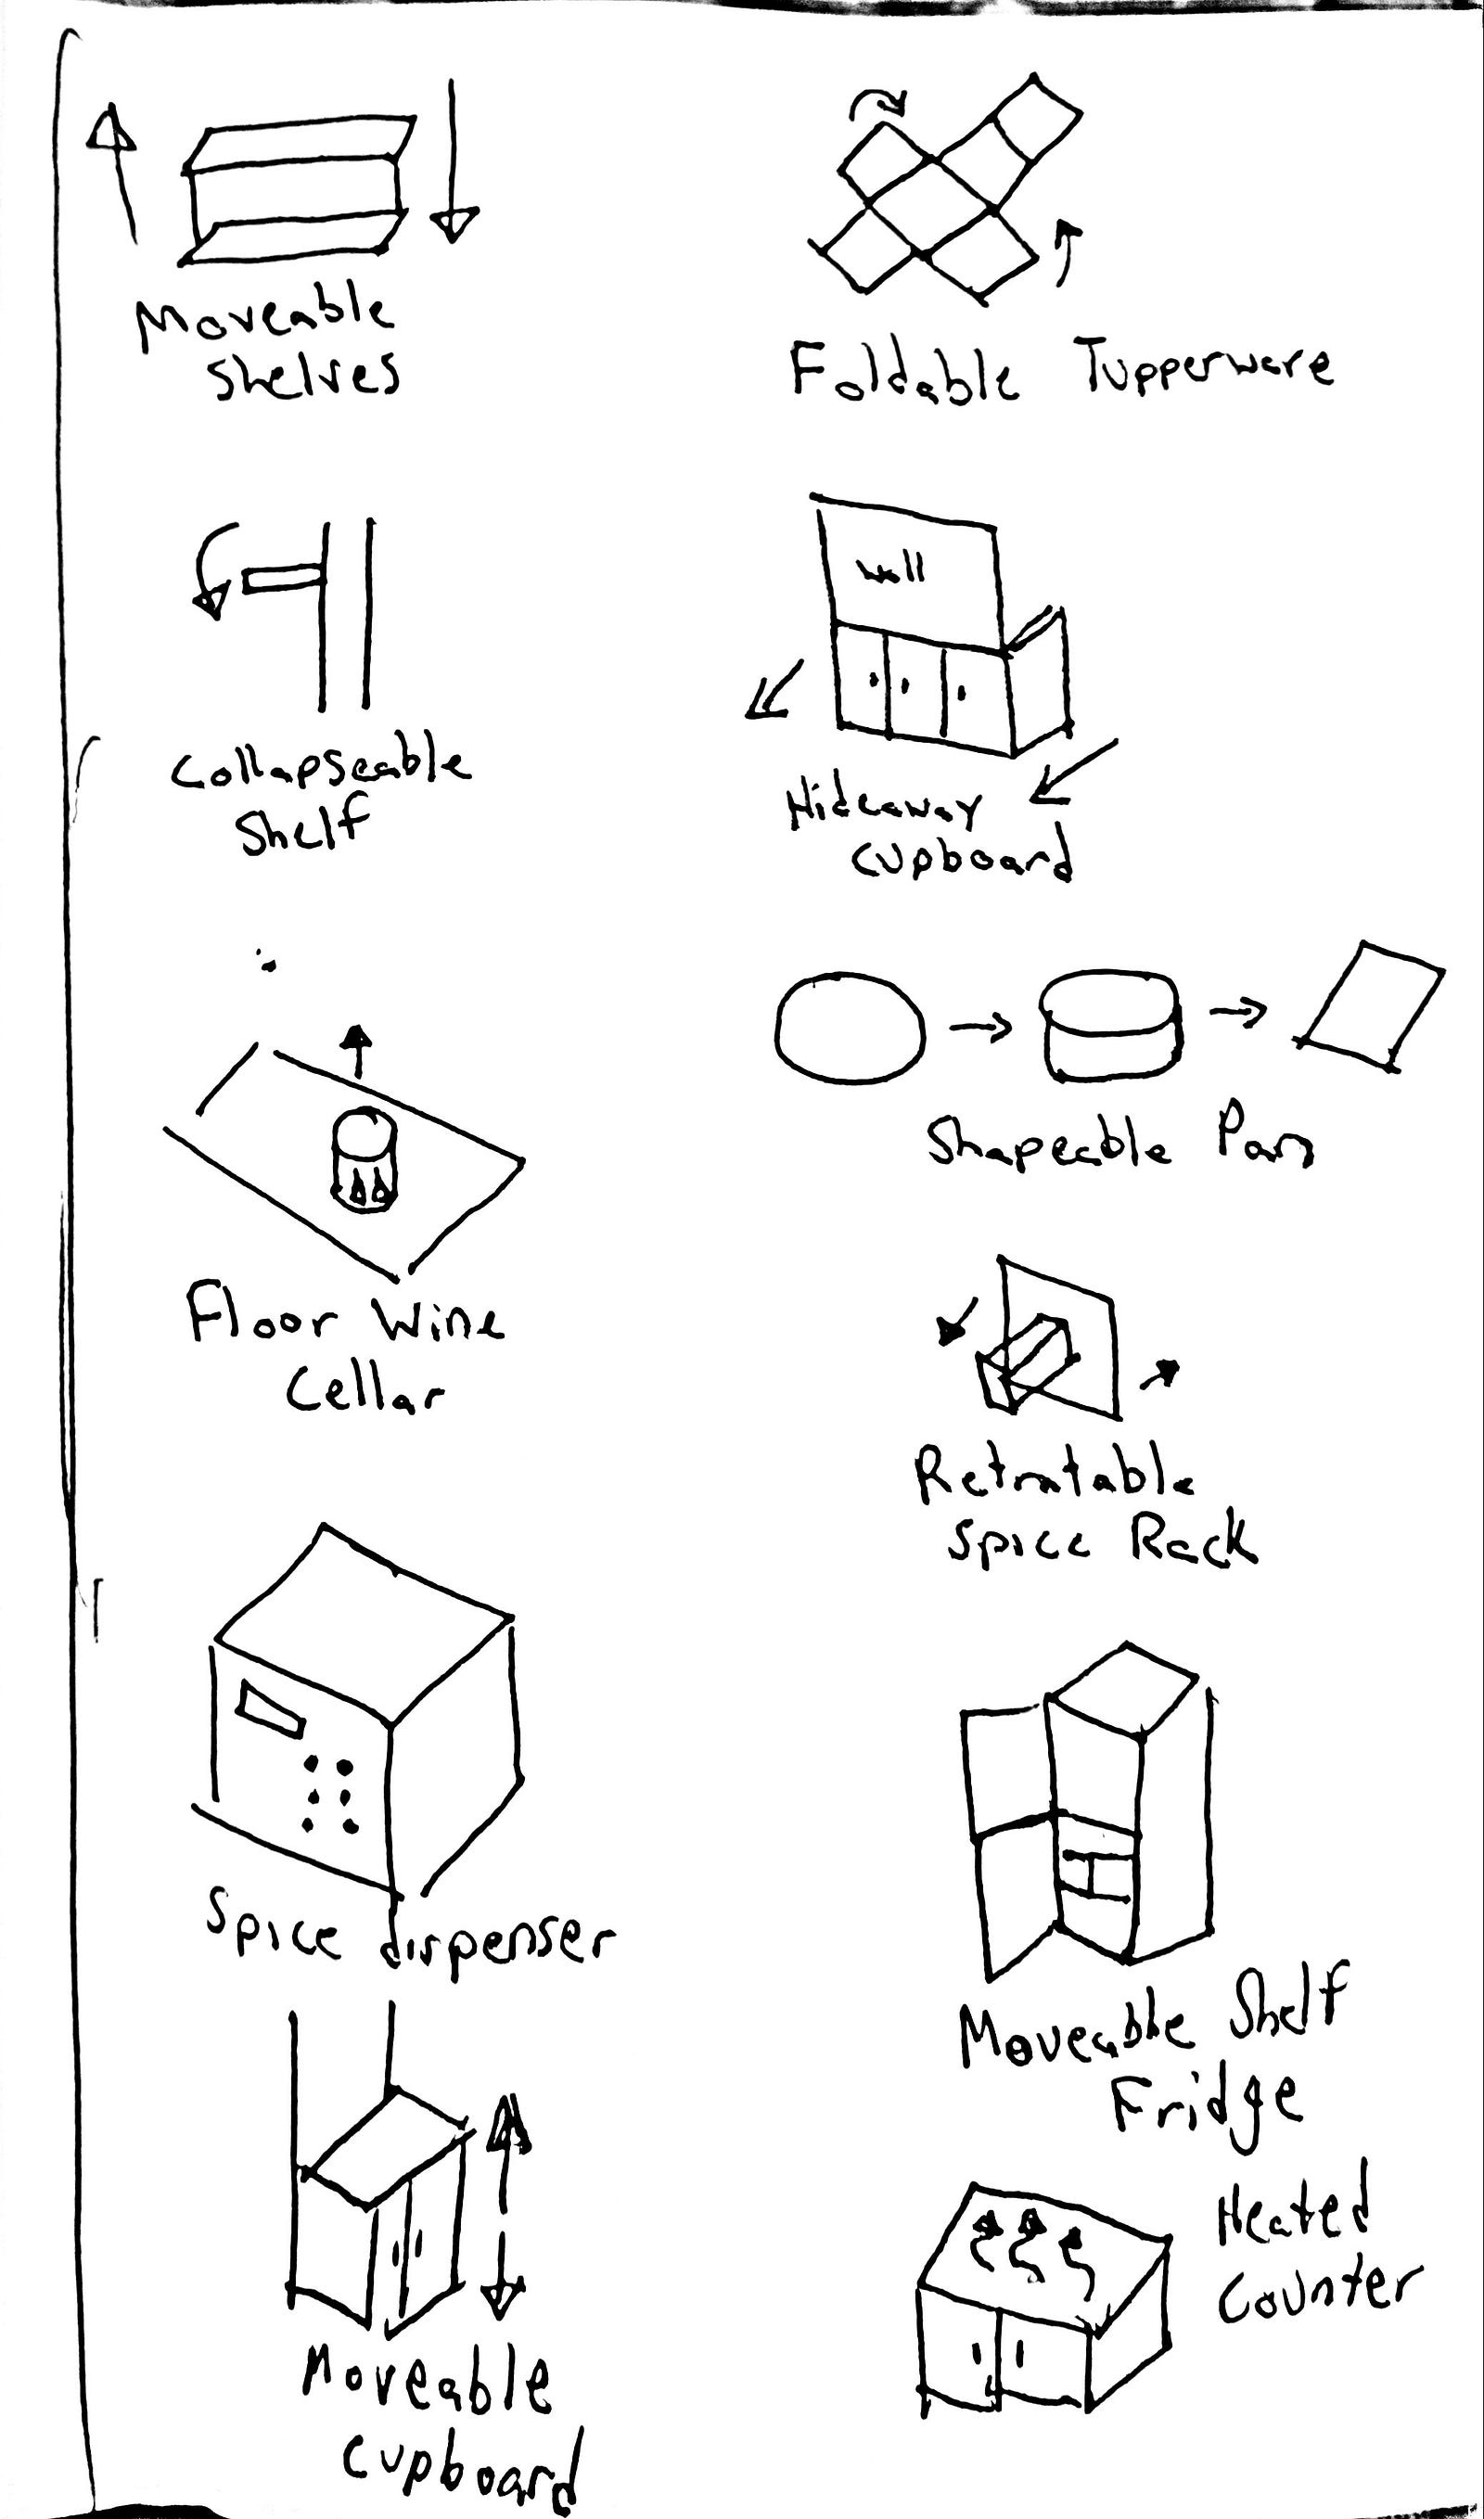 Moveable
Shelves
Foldable Tupperware
Collapseable
Shelf
wall
Hideaway
cupboard
Shapeable Pan
Floor Wine
Cellar
Retratable
Spice Rack
Spice dispenser
Moveable Shelf
Fridge
Moveable
cupboard
Heated
Counter